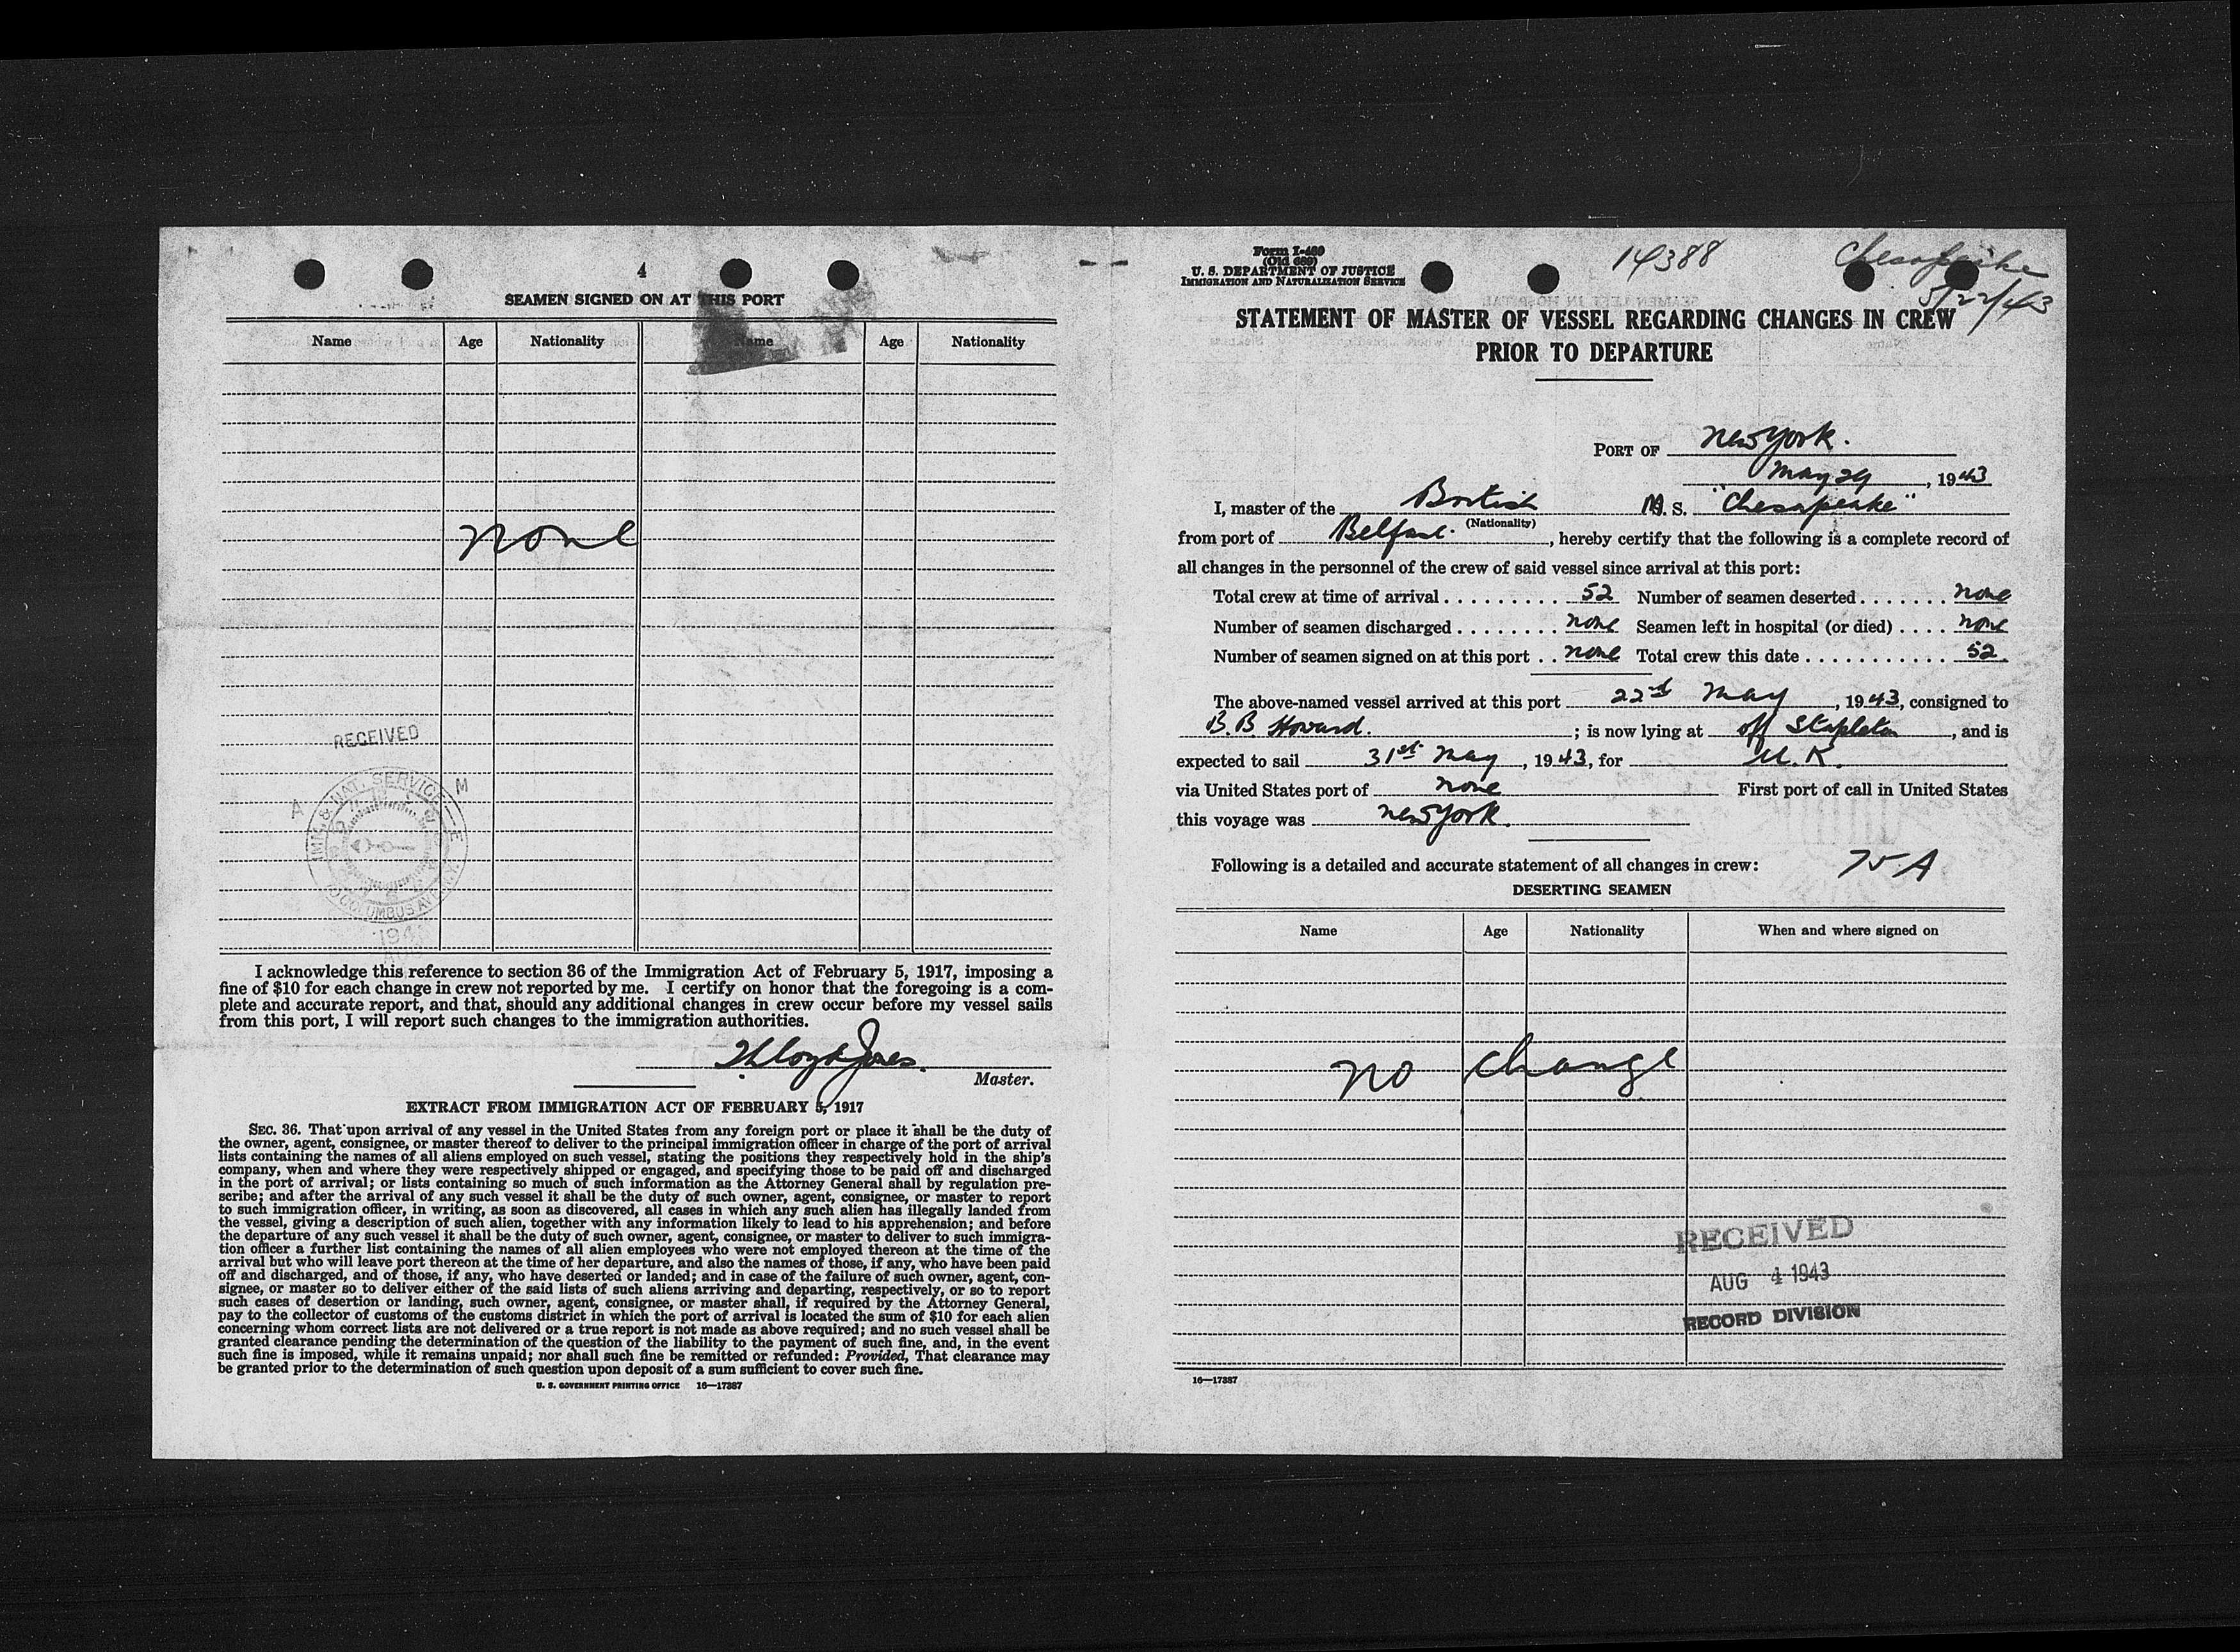 4
SEAMEN SIGNED ON AT THIS PORT
Name Age Nationality Name Age Nationality
none
RECEIVED
A M
IMM. & NAT. SERVICE
COLUMBUS AV
194
I acknowledge this reference to section 36 of the Immigration Act of February 5, 1917, imposing a
fine of $10 for each change in crew not reported by me. I certify on honor that the foregoing is a com-
plete and accurate report, and that, should any additional changes in crew occur before my vessel sails
from this port, I will report such changes to the immigration authorities.
Lloyd Jones.
Master.
EXTRACT FROM IMMIGRATION ACT OF FEBRUARY 5, 1917
SEC. 36. That upon arrival of any vessel in the United States from any foreign port or place it shall be the duty of
the owner, agent, consignee, or master thereof to deliver to the principal immigration officer in charge of the port of arrival
lists containing the names of all aliens employed on such vessel, stating the positions they respectively hold in the ship's
company, when and where they were respectively shipped or engaged, and specifying those to be paid off and discharged
in the port of arrival; or lists containing so much of such information as the Attorney General shall by regulation pre-
scribe; and after the arrival of any such vessel it shall be the duty of such owner, agent, consignee, or master to report
to such immigration officer, in writing, as soon as discovered, all cases in which any such alien has illegally landed from
the vessel, giving a description of such alien, together with any information likely to lead to his apprehension; and before
the departure of any such vessel it shall be the duty of such owner, agent, consignee, or master to deliver to such immigra-
tion officer a further list containing the names of all alien employees who were not employed thereon at the time of the
arrival but who will leave port thereon at the time of her departure, and also the names of those, if any, who have been paid
off and discharged, and of those, if any, who have deserted or landed; and in case of the failure of such owner, agent, con-
signee, or master so to deliver either of the said lists of such aliens arriving and departing, respectively, or so to report
such cases of desertion or landing, such owner, agent, consignee, or master shall, if required by the Attorney General,
pay to the collector of customs of the customs district in which the port of arrival is located the sum of $10 for each alien
concerning whom correct lists are not delivered or a true report is not made as above required; and no such vessel shall be
granted clearance pending the determination of the question of the liability to the payment of such fine, and, in the event
such fine is imposed, while it remains unpaid; nor shall such fine be remitted or refunded: Provided, That clearance may
be granted prior to the determination of such question upon deposit of a sum sufficient to cover such fine.
U. S. GOVERNMENT PRINTING OFFICE 16—17387
Form I-489
(Old 689)
U. S. DEPARTMENT OF JUSTICE
IMMIGRATION AND NATURALIZATION SERVICE
14388
Chesapeake
5/22/43
STATEMENT OF MASTER OF VESSEL REGARDING CHANGES IN CREW
PRIOR TO DEPARTURE
PORT OF New York.
May 29, 1943
I, master of the British M. S. "Chesapeake"
(Nationality)
from port of Belfast., hereby certify that the following is a complete record of
all changes in the personnel of the crew of said vessel since arrival at this port:
Total crew at time of arrival .......... 52 Number of seamen deserted ....... none
Number of seamen discharged ........ none Seamen left in hospital (or died) .... none
Number of seamen signed on at this port .. none Total crew this date ............ 52.
The above-named vessel arrived at this port 22nd May, 1943, consigned to
B.B Howard. ; is now lying at off Stapleton, and is
expected to sail 31st May, 1943, for U.K.
via United States port of none First port of call in United States
this voyage was New York.
Following is a detailed and accurate statement of all changes in crew: 75 A
DESERTING SEAMEN
Name Age Nationality When and where signed on
no change
RECEIVED
AUG 4 1943
RECORD DIVISION
16—17387